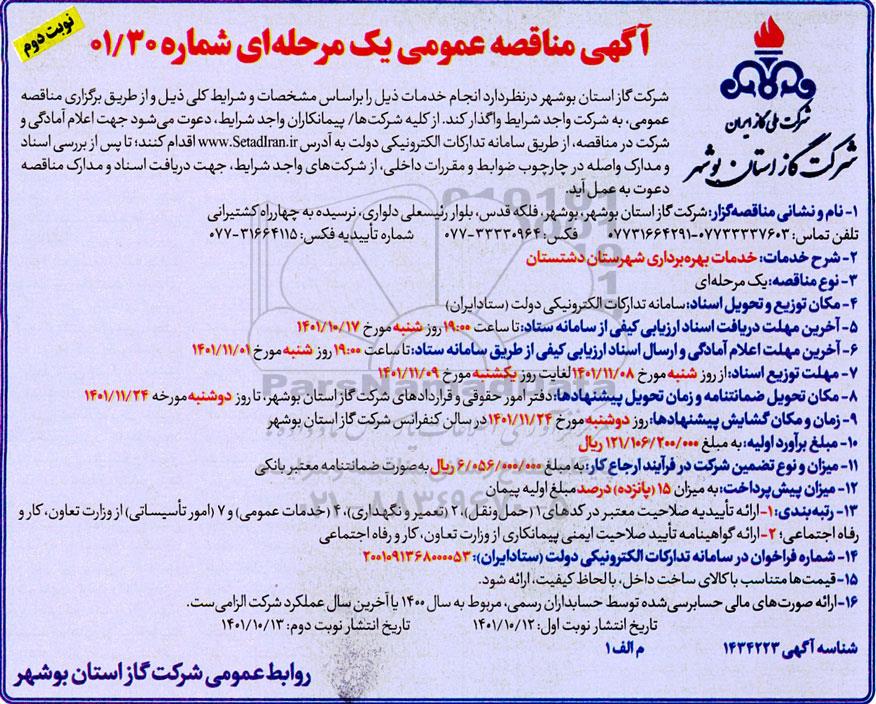 نوبت دوم
آگهی مناقصه عمومی یک مرحله‌ای شماره ۰۱/۳۰
شرکت ملی گاز ایران
شرکت گاز استان بوشهر
شرکت گاز استان بوشهر درنظردارد انجام خدمات ذیل را براساس مشخصات و شرایط کلی ذیل و از طریق برگزاری مناقصه
عمومی، به شرکت واجد شرایط واگذار کند. از کلیه شرکت‌ها/ پیمانکاران واجد شرایط، دعوت می‌شود جهت اعلام آمادگی و
شرکت در مناقصه، از طریق سامانه تدارکات الکترونیکی دولت به آدرس www.SetadIran.ir اقدام کنند؛ تا پس از بررسی اسناد
و مدارک واصله در چارچوب ضوابط و مقررات داخلی، از شرکت‌های واجد شرایط، جهت دریافت اسناد و مدارک مناقصه
دعوت به عمل آید.
۱- نام و نشانی مناقصه‌گزار: شرکت گاز استان بوشهر، بوشهر، فلکه قدس، بلوار رئیسعلی دلواری، نرسیده به چهارراه کشتیرانی
تلفن تماس: ۰۷۷۳۳۳۳۷۶۰۳-۰۷۷۳۱۶۶۴۲۹۱ فکس: ۳۳۳۳۰۹۶۴-۰۷۷ شماره تأییدیه فکس: ۳۱۶۶۴۱۱۵-۰۷۷
۲- شرح خدمات: خدمات بهره‌برداری شهرستان دشتستان
۳- نوع مناقصه: یک مرحله‌ای
۴- مکان توزیع و تحویل اسناد: سامانه تدارکات الکترونیکی دولت (ستادایران)
۵- آخرین مهلت دریافت اسناد ارزیابی کیفی از سامانه ستاد: تا ساعت ۱۹:۰۰ روز شنبه مورخ ۱۴۰۱/۱۰/۱۷
۶- آخرین مهلت اعلام آمادگی و ارسال اسناد ارزیابی کیفی از طریق سامانه ستاد: تا ساعت ۱۹:۰۰ روز شنبه مورخ ۱۴۰۱/۱۱/۰۱
۷- مهلت توزیع اسناد: از روز شنبه مورخ ۱۴۰۱/۱۱/۰۸ لغایت روز یکشنبه مورخ ۱۴۰۱/۱۱/۰۹
۸- مکان تحویل ضمانتنامه و زمان تحویل پیشنهادها: دفتر امور حقوقی و قراردادهای شرکت گاز استان بوشهر، تا روز دوشنبه مورخه ۱۴۰۱/۱۱/۲۴
۹- زمان و مکان گشایش پیشنهادها: روز دوشنبه مورخ ۱۴۰۱/۱۱/۲۴ در سالن کنفرانس شرکت گاز استان بوشهر
۱۰- مبلغ برآورد اولیه: به مبلغ ۱۲۱/۱۰۶/۲۰۰/۰۰۰ ریال
۱۱- میزان و نوع تضمین شرکت در فرآیند ارجاع کار: به مبلغ ۶/۰۵۶/۰۰۰/۰۰۰ ریال به‌صورت ضمانتنامه معتبر بانکی
۱۲- میزان پیش‌پرداخت: به میزان ۱۵ (پانزده) درصد مبلغ اولیه پیمان
۱۳- رتبه‌بندی: ۱- ارائه تأییدیه صلاحیت معتبر در کدهای ۱ (حمل‌ونقل)، ۲ (تعمیر و نگهداری)، ۴ (خدمات عمومی) و ۷ (امور تأسیساتی) از وزارت تعاون، کار و
رفاه اجتماعی؛ ۲- ارائه گواهینامه تأیید صلاحیت ایمنی پیمانکاری از وزارت تعاون، کار و رفاه اجتماعی
۱۴- شماره فراخوان در سامانه تدارکات الکترونیکی دولت (ستادایران): ۲۰۰۱۰۹۱۳۶۸۰۰۰۰۵۳
۱۵- قیمت‌ها متناسب با کالای ساخت داخل، با لحاظ کیفیت، ارائه شود.
۱۶- ارائه صورت‌های مالی حسابرسی‌شده توسط حسابداران رسمی، مربوط به سال ۱۴۰۰ یا آخرین سال عملکرد شرکت الزامی‌ست.
تاریخ انتشار نوبت اول: ۱۴۰۱/۱۰/۱۲ تاریخ انتشار نوبت دوم: ۱۴۰۱/۱۰/۱۳
شناسه آگهی ۱۴۳۴۲۲۳ م الف ۱
روابط عمومی شرکت گاز استان بوشهر
ParsNamadData